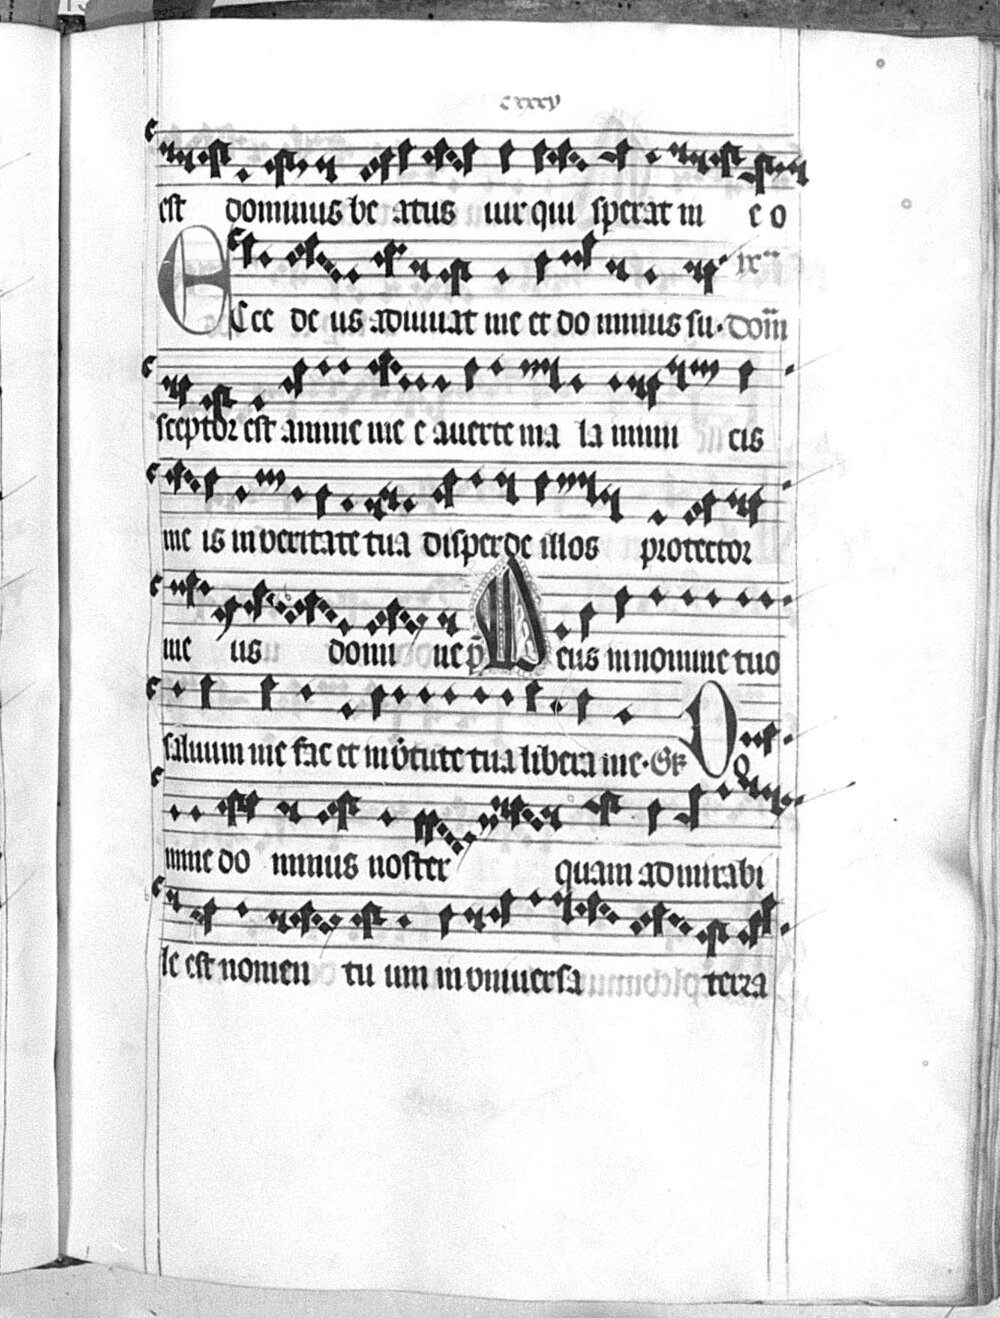 cxxxv
est dominus be atus uir qui sperat in e o
ix
Ecce de us adiuuat me et do minus su. dom̄
sceptor est anime me e auerte ma la inimi cis
me is in ueritate tua disperde illos protector
me us domi ne p̄ Deus in nomine tuo
saluum me fac et in v̄tute tua libera me. Gr̄ Do
mine do minus noster quam admirabi
le est nomen tu um in vniuersa terra